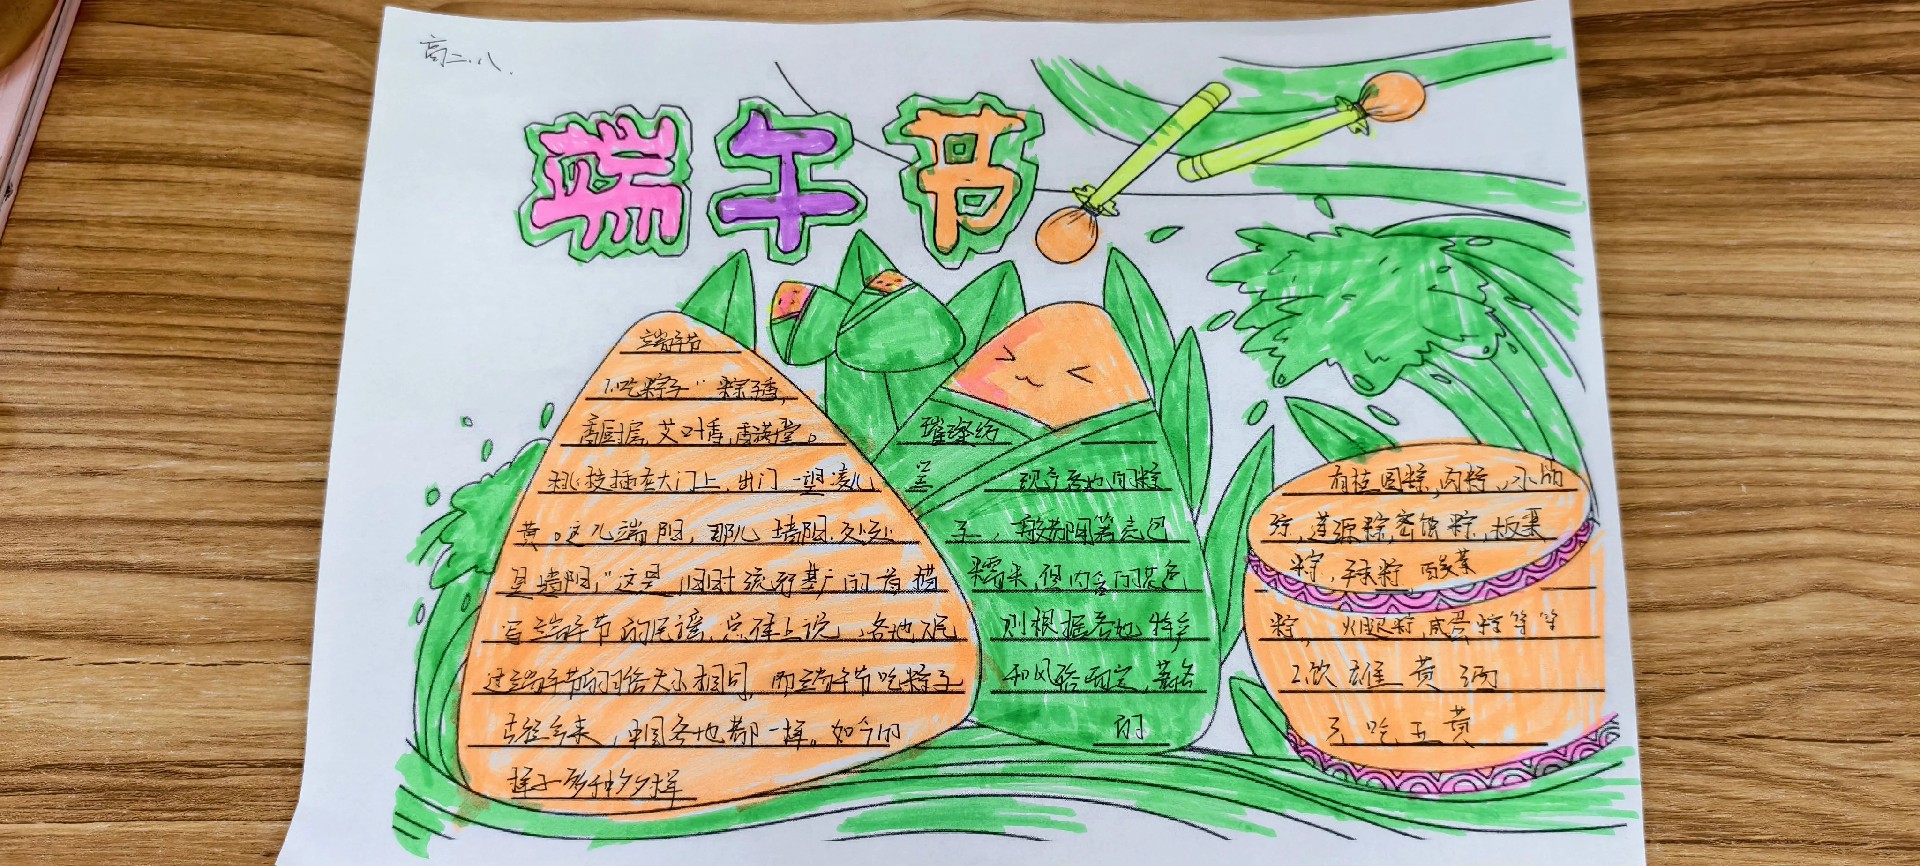 高二.八.
端午节
端午节
1.吃粽子"粽子香,
香厨房,艾叶香,香满堂。
桃枝插在大门上,出门一望麦儿
黄。这儿端阳,那儿端阳,处处
是端阳,"这是旧时流行甚广的首描
写端午节的民谣,总体上说,各地人民
过端午节的习俗大小相同,而端午节吃粽子
古往今来,中国各地都一样。如今的
样子多种多样
璀璨纷
呈
现今各地的粽
子,一般都用箬壳包
糯米,但内含的花色
则根据各地特产
和风俗而定,著名
的
有桂圆粽,肉粽,水晶
粽,莲源粽,蜜饯粽,板栗
粽,辣粽,酸菜
粽,火腿粽,咸蛋粽等等
2.饮雄黄酒
3.吃五黄